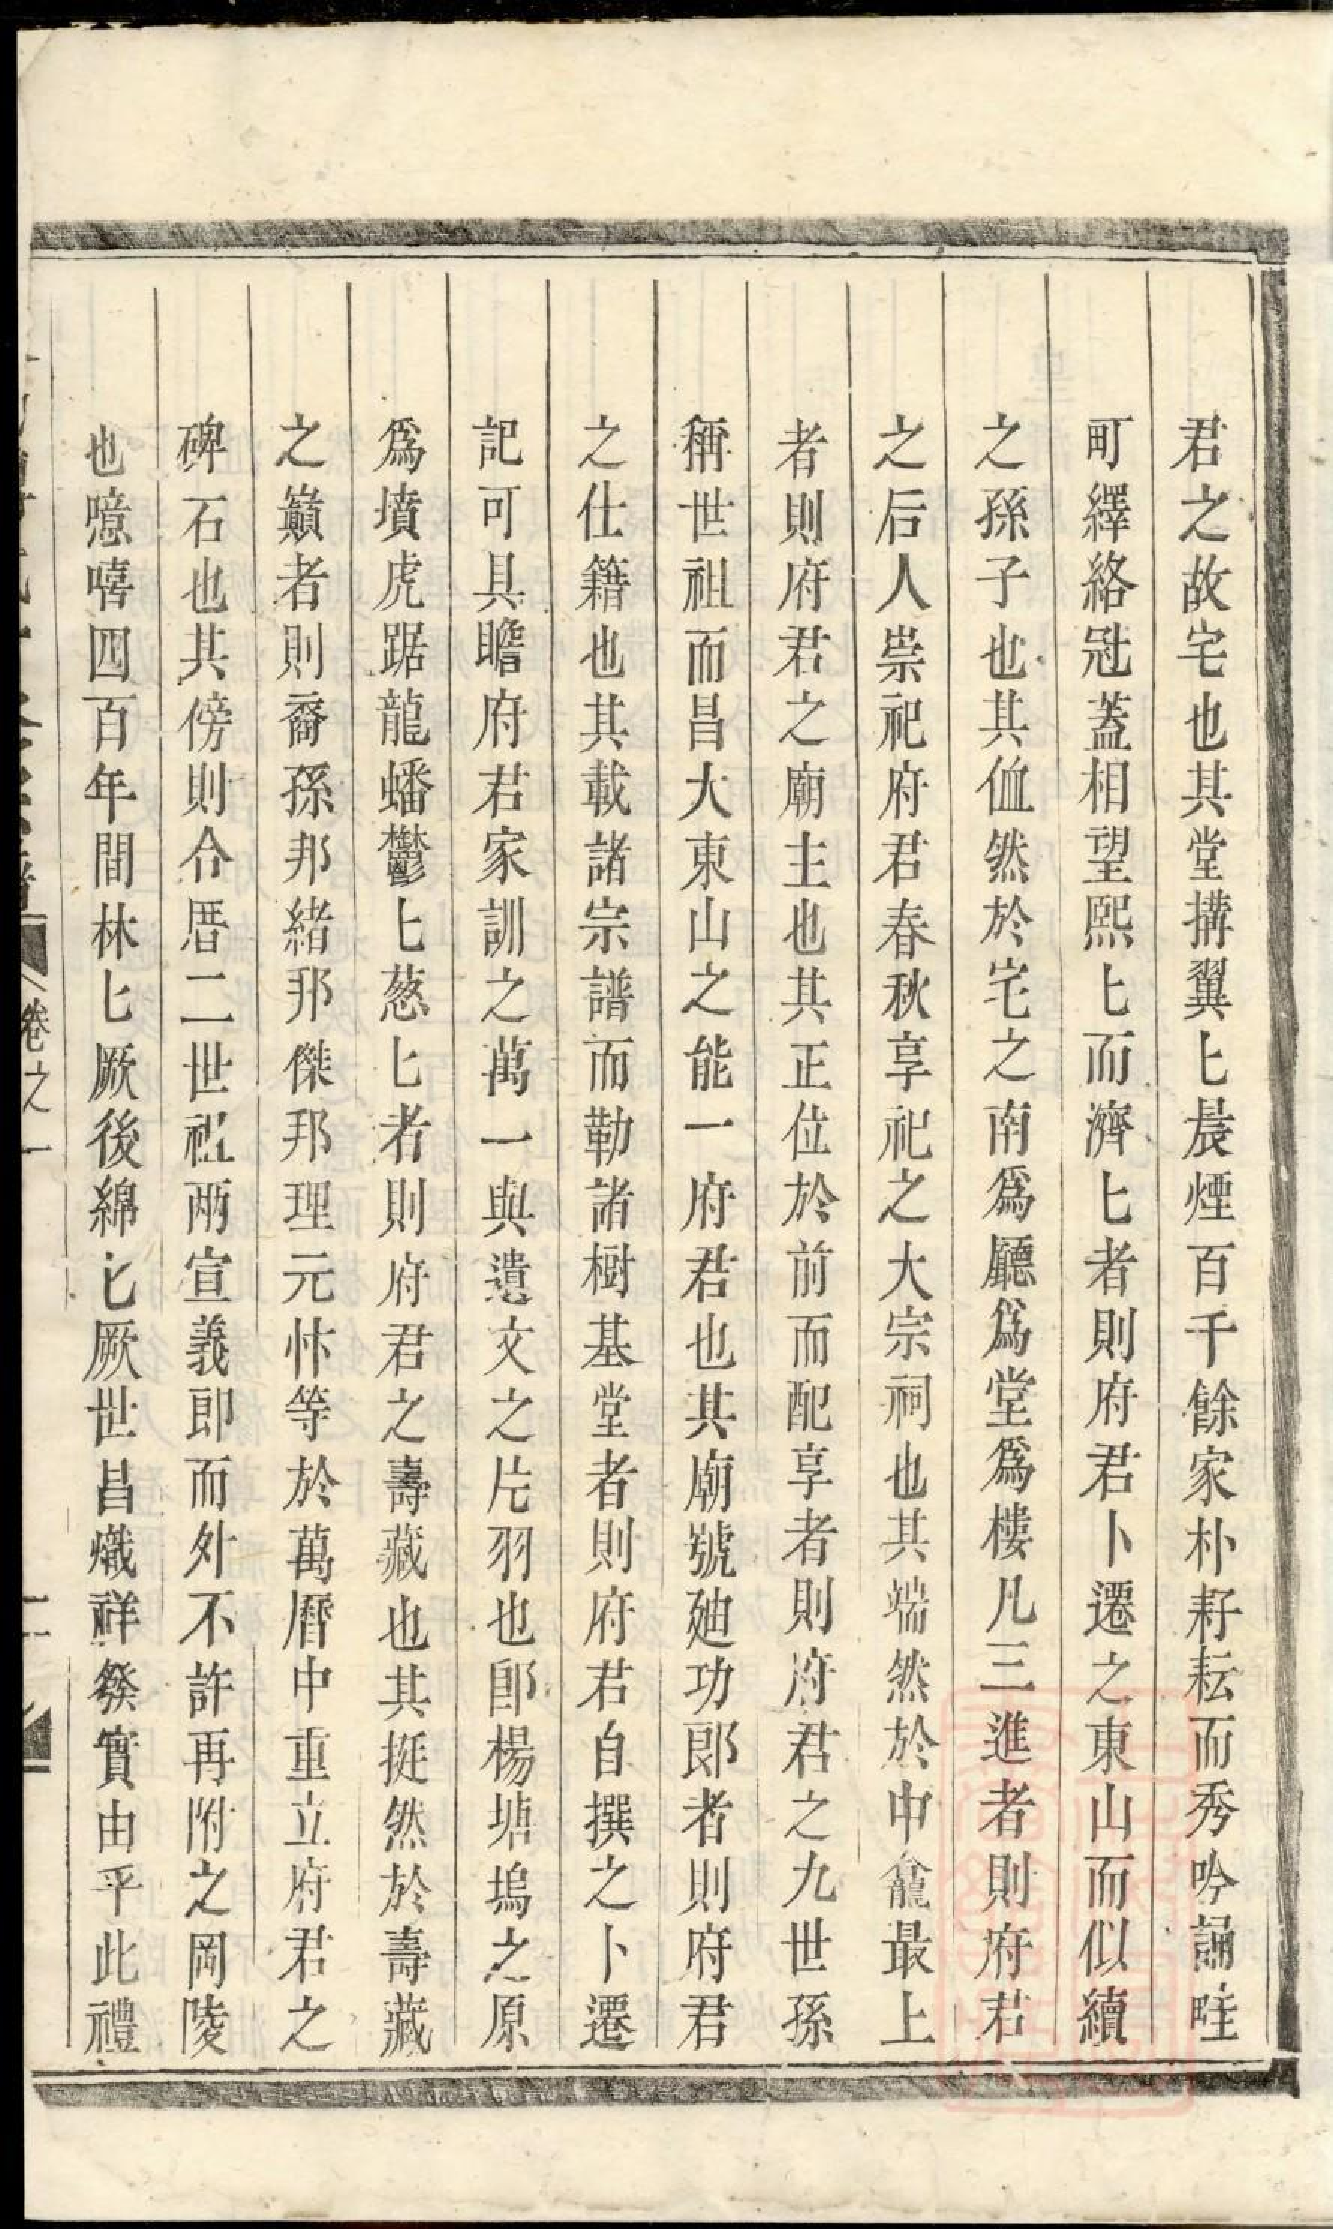 君之故宅也其堂搆翼匕晨煙百千餘家朴耔耘而秀吟誦畦
町繹絡冠蓋相望熙匕而濟匕者則府君卜遷之東山而似續
之孫子也其侐然於宅之南爲廳爲堂爲樓凡三進者則府君
之后人崇祀府君春秋享祀之大宗祠也其端然於中龕最上
者則府君之廟主也其正位於前而配享者則府君之九世孫
稱世祖而昌大東山之能一府君也其廟號廸功郎者則府君
之仕籍也其載諸宗譜而勒諸樹基堂者則府君自撰之卜遷
記可具瞻府君家訓之萬一與遺文之片羽也卽楊塘塢之原
爲墳虎踞龍蟠鬱匕葱匕者則府君之壽藏也其挺然於壽藏
之巔者則裔孫邦緒邦傑邦理元忭等於萬曆中重立府君之
碑石也其傍則合厝二世祖兩宣義郎而外不許再附之岡陵
也噫嘻四百年間林匕厥後綿匕厥世昌熾祥發實由乎此禮
卷之一